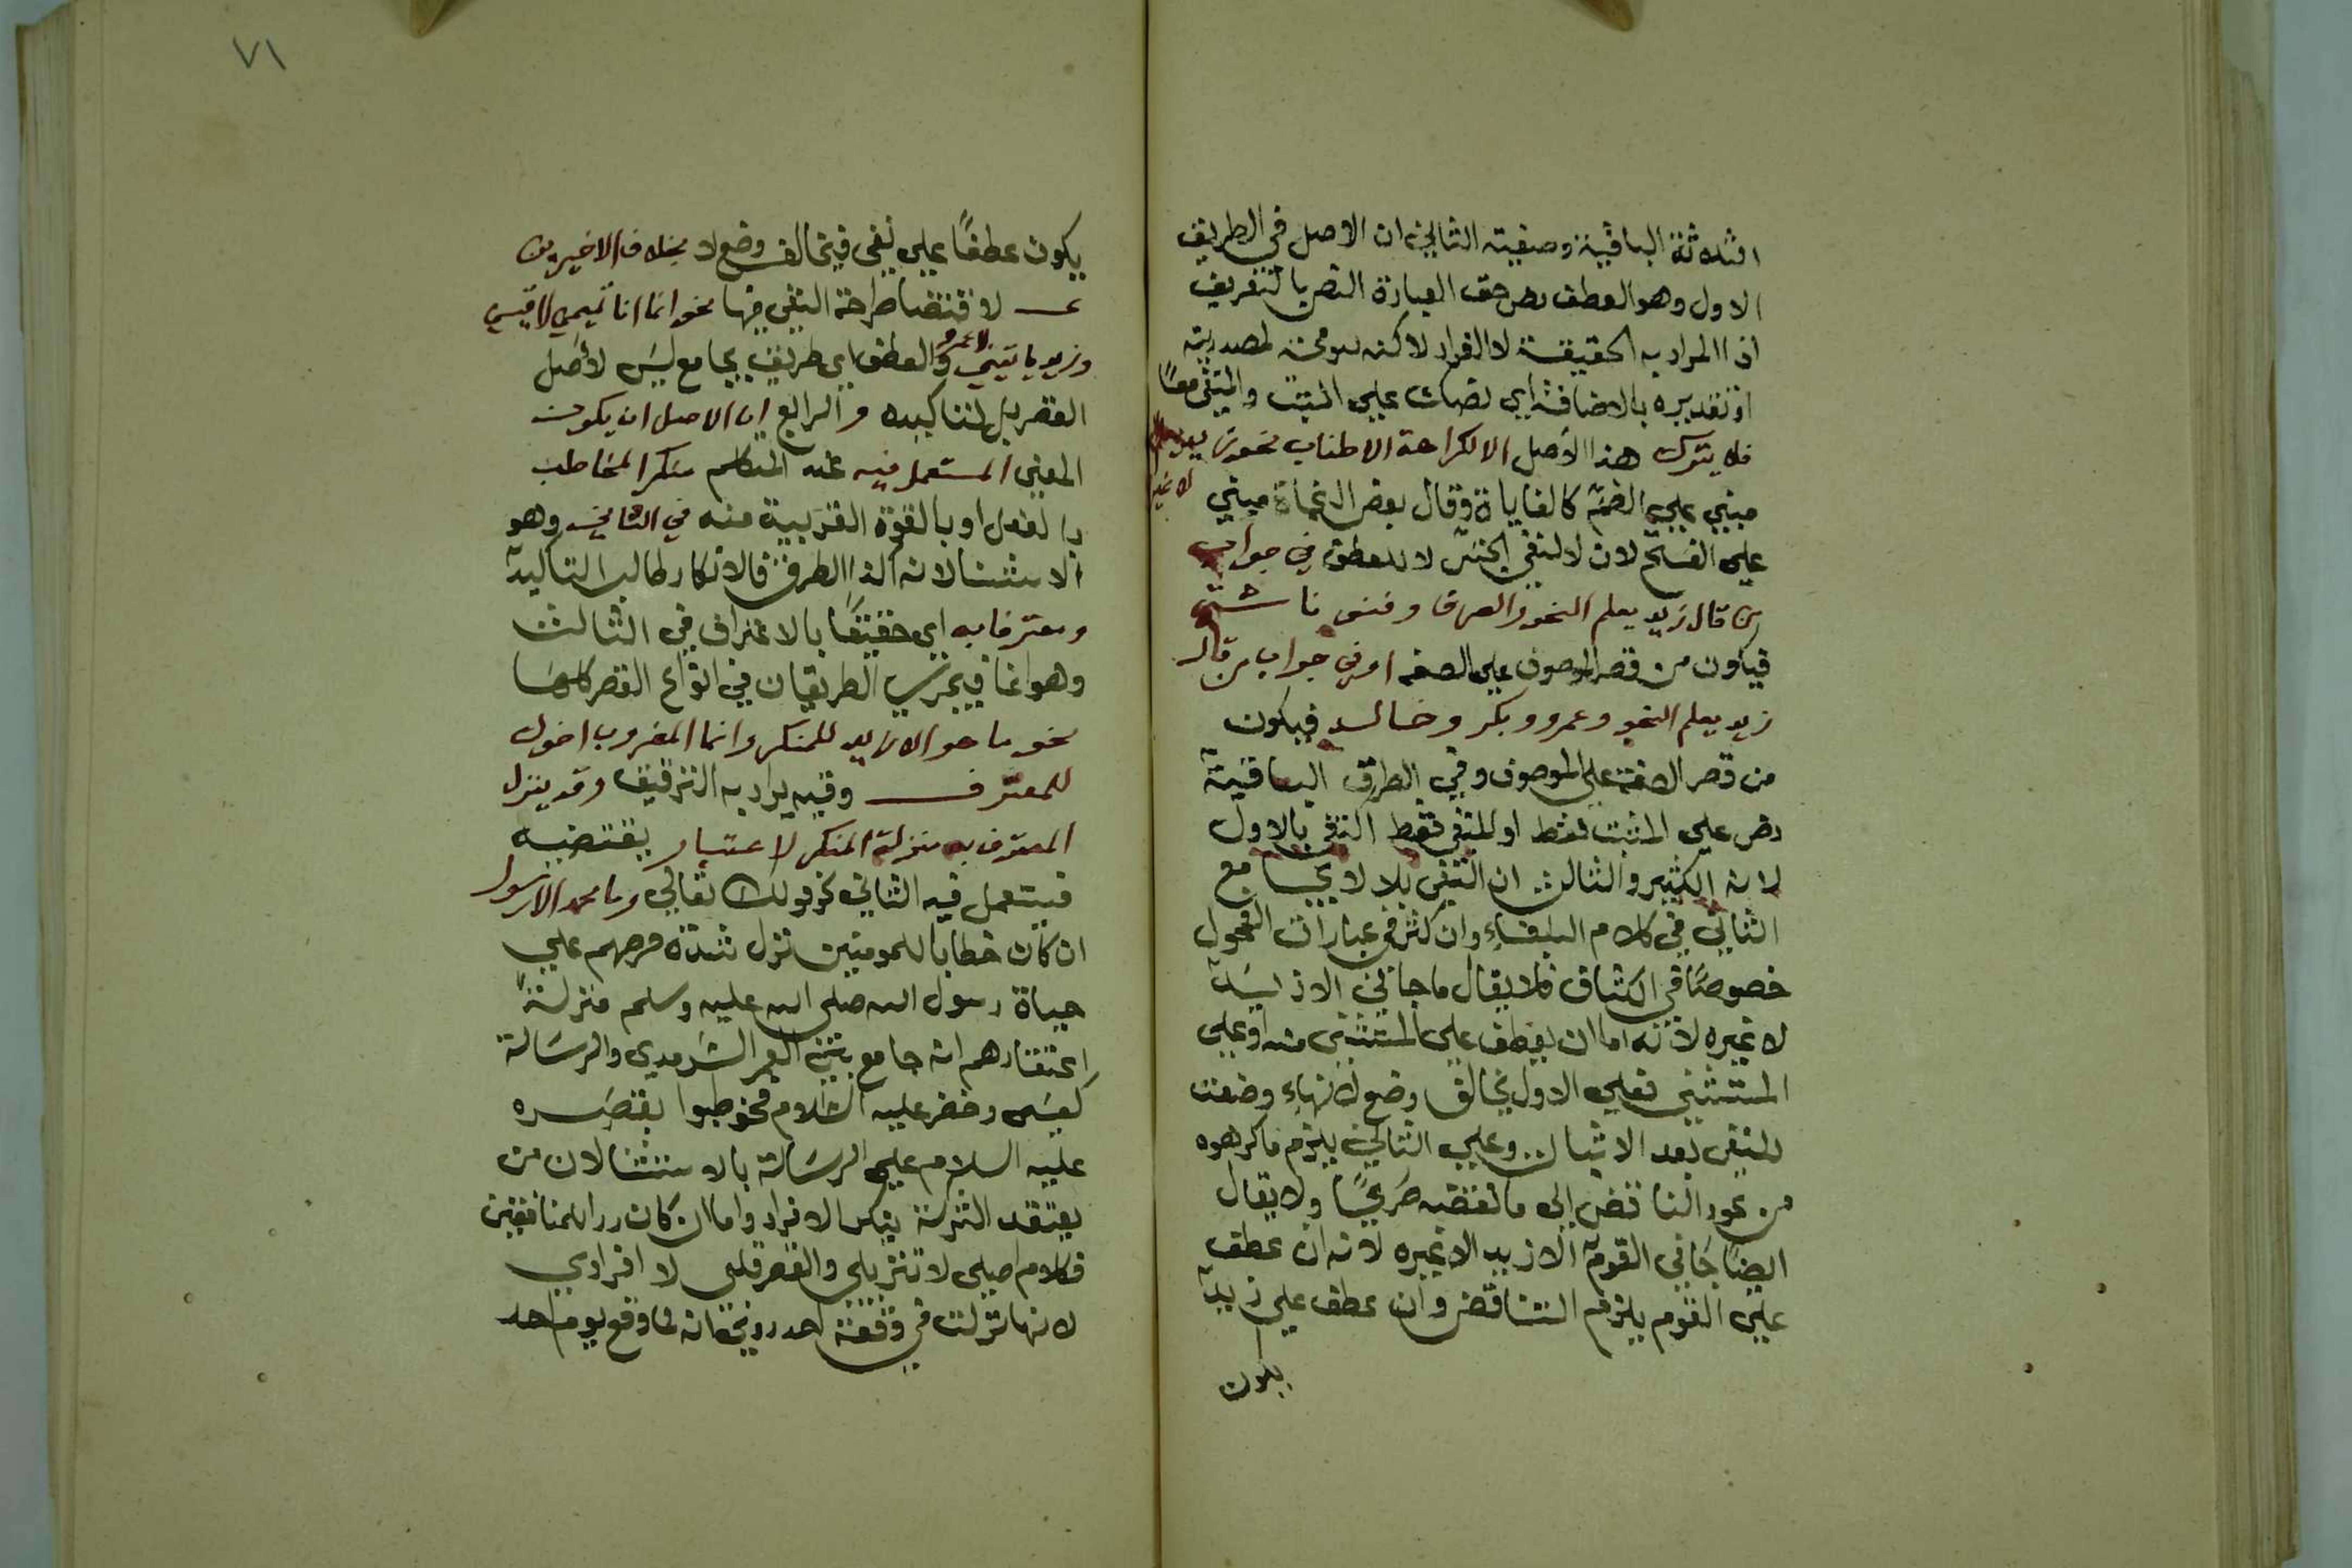 الثلاثة الباقية وصفيته الثاني ان الاصل في الطريق
الاول وهو العطف نص حق العبارة النص بالتفريق
اذ المراد به الحقيقة لا الفرد لاكنه لمصدريته
او تقديره بالاضافة اي نصاب علي المثبت والمنفي معا
فلا يترك هذا الاصل الا لكراهة الاطناب نحو زيد يعلم
لا غير
مبني علي الضم كالغاياة وقال بعض النحاة مبني
علي الفتح لان لا لنفي الجنس لا للعطف في جواب
من قال زيد يعلم النحو والصرف وفنونا شتي
فيكون من قصر الموصوف علي الصفه او في جواب من قال
زيد يعلم النحو وعمرو وبكر وخالد فيكون
من قصر الصفة علي الموصوف وفي الطرق الباقية
نص علي المثبت فقط او المنفي فقط النفي بالاول
لانه الكثير والثالث ان النفي بلا لا يجامع
الثاني في كلام البلغاء وان كثر في عبارات الفحول
خصوصا في الكشاف فلا يقال ما جاني الا زيد
لا غيره لانه اما ان يعطف علي المستثني منه او علي
المستثني فعلي الاول يخالف وضع لا لانها وضعت
للنفي بعد الاثبات وعلي الثاني يلزم ماكرهوه
من عود الناقض الي ما نقضه صريحا ولا يقال
ايضا جاني القوم الا زيد لا غيره لانه ان عطف
علي القوم يلزم التناقض وان عطف علي زيد
يكون
٧١
يكون عطفا علي نفي فيخالف وضع لا بخلاف الاخيرين
لاقتضا صراحة النفي فيها نحو انما انا تميمي لا قيسي
وزيد ياتيني لا عمرو والعطف اي طريق يجامع ليس لاصل
القصر بل لتاكيده والرابع ان الاصل ان يكون
المعني المستعمل فيه عند المتكلم منكر المخاطب
بالفعل او بالقوة القريبة منه في الثاني وهو
الاستثنا لانه الذا الطرق فالانكار طالب التاكيد
ومعترفا به اي حقيقا بالاعتراف في الثالث
وهو انما فيجري الطريقان في انواع القصر كلها
نحو ما هو الا زيد للمنكر وانما المضروب اخوك
للمعترف وفيه يراد به الترقيق وقد ينزل
المعترف به منزلة المنكر لاعتبار يقتضيه
فيستعمل فيه الثاني نحو قوله تعالي وما محمد الا رسول
ان كان خطابا للمومنين نزل شدة حرصهم علي
حياة رسول الله صلي الله عليه وسلم منزلة
اعتقادهم انه جامع بين العمر السرمدي والرسالة
كعيسي وخضر عليه السلام فخوطبوا بقصره
عليه السلام علي الرسالة بالاستثنا لان من
يعتقد الشركة ينكر الافراد واما ان كان ردا للمنافقين
فكلام اصلي لا تنزيلي والقصر قلبي لا افرادي
لانها نزلت في وقعة احد روي انه لما وقع يوم احد